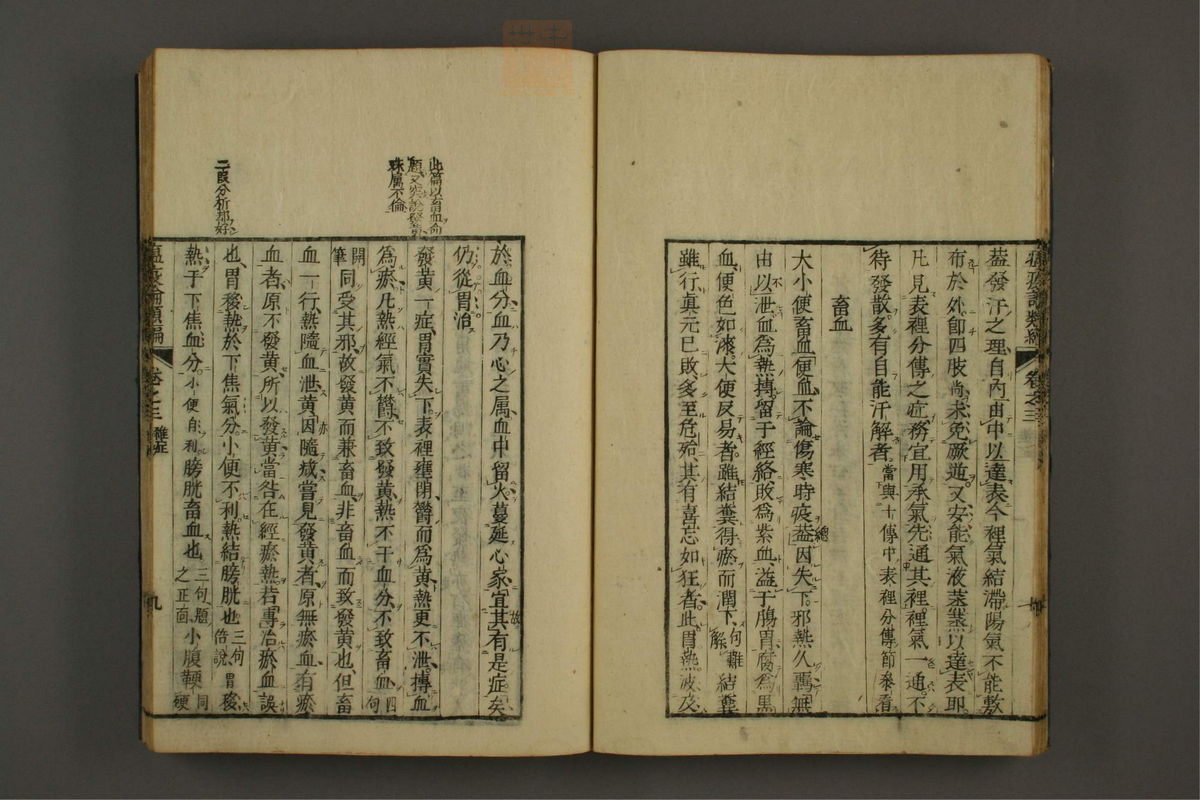 瘟疫論類編 卷之三
蓋發汗之理自內由中以達表今裡氣結滯陽氣不能敷
布於外卽四肢尚未免厥逆又安能氣液蒸蒸以達表卽
凡見表裡分傳之症務宜用承氣先通其裡裡氣一通不
待發散多有自能汗解者 當與十傳中表裡分傳節參看
畜血
大小便畜血便血不論傷寒時疫蓋因失下邪熱久羈無
由以泄血爲熱搏留于經絡敗爲紫血溢于腸胃腐爲黑
血便色如漆大便反易者雖結糞得瘀而潤下 句難解 結糞
雖行眞元已敗多至危殆其有喜忘如狂者此胃熱波及
於血分血乃心之屬血中留火蔓延心家宜其有是症矣
仍從胃治
發黃一症胃實失下表裡壅閉鬱而爲黃熱更不泄搏血
爲瘀凡熱經氣不鬱不致發黃熱不干血分不致畜血 四句
開筆 同受其邪故發黃而兼畜血非畜血而致發黃也但畜
血一行熱隨血泄黃因隨減嘗見發黃者原無瘀血有瘀
血者原不發黃所以發黃當咎在經瘀熱若專治瘀血誤
也胃移熱於下焦氣分小便不利熱結膀胱也 三句倍說 胃移
熱于下焦血分小便自利膀胱畜血也 三句題之正面 小腹鞕 同硬
瘟疫論類編 卷之三 雜症 九
此篇以畜血命
題又兼說發黃
殊屬不倫
二段分析都好